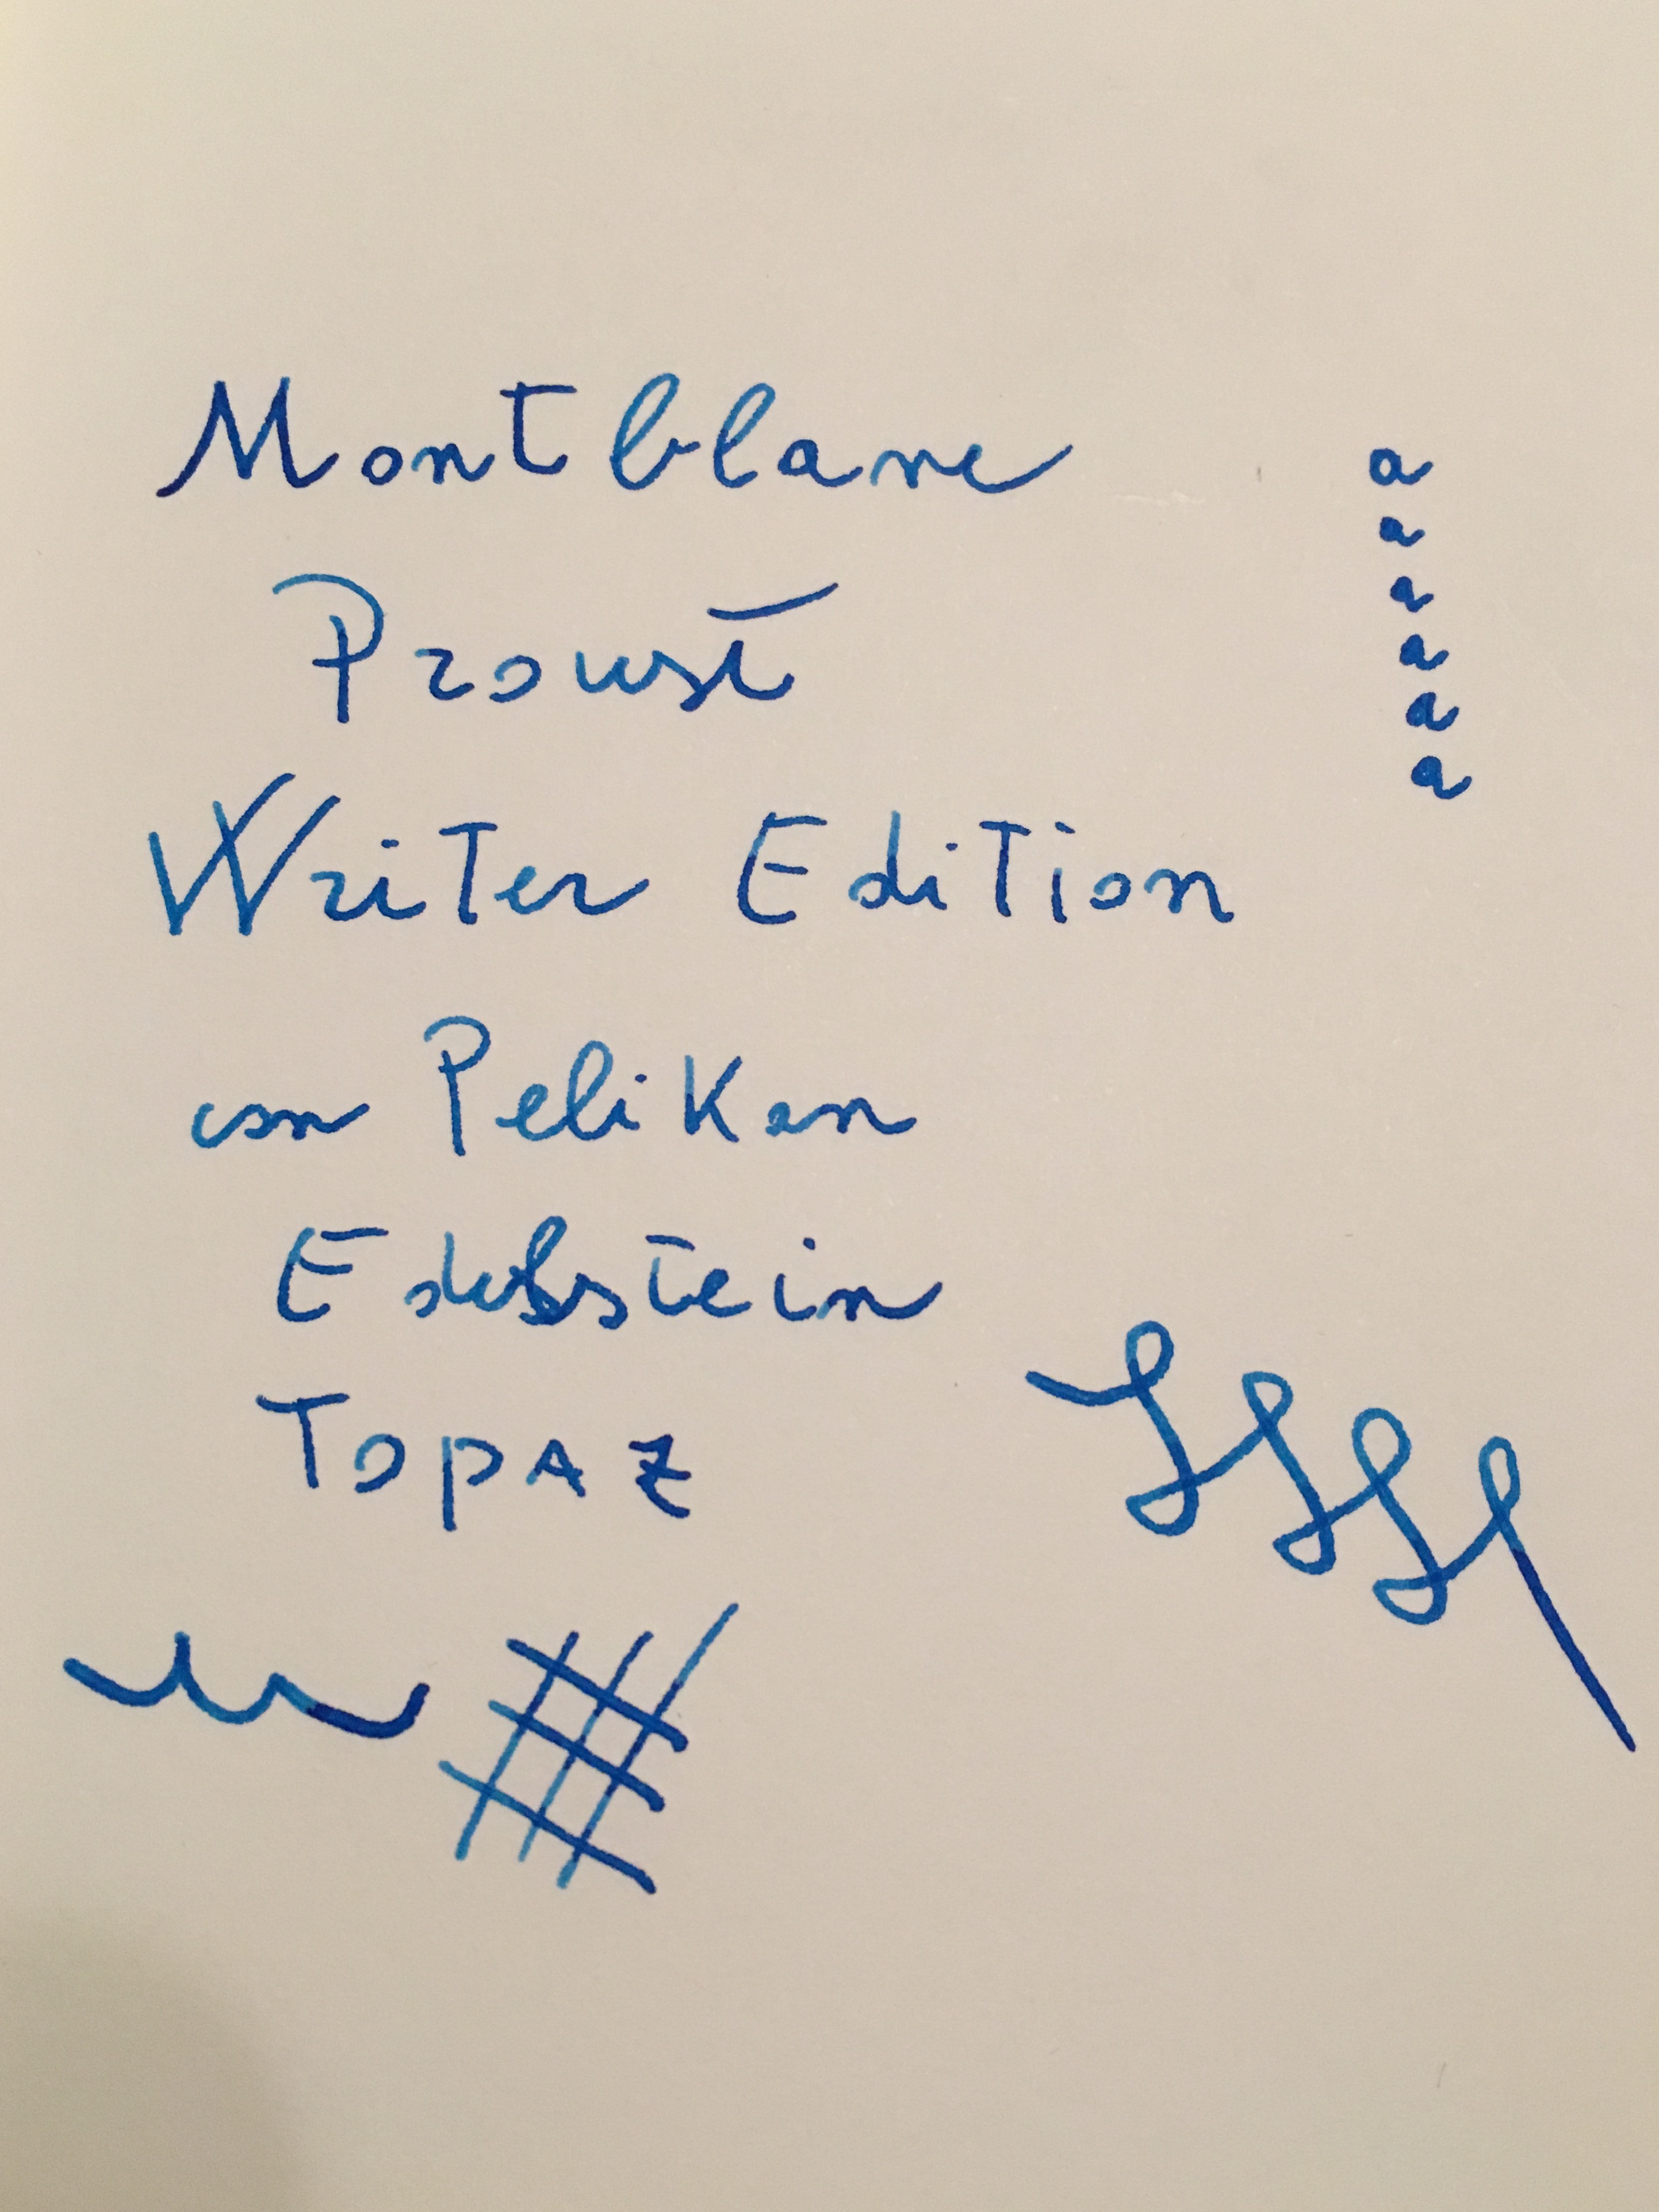 Montblanc
Proust
Writer Edition
con Pelikan
Edelstein
Topaz
a
a
a
a
a
a